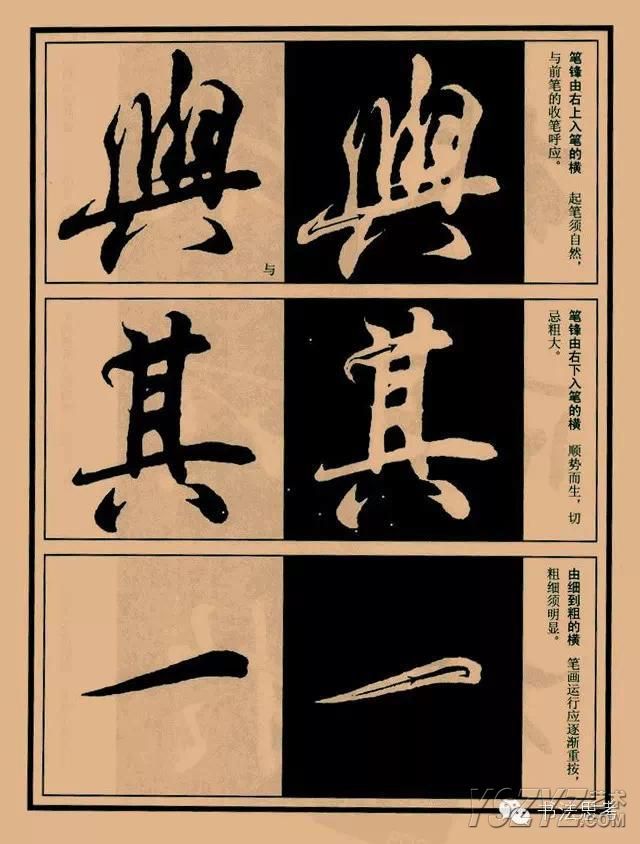 與
與
与
笔锋由右上入笔的横 起笔须自然，
与前笔的收笔呼应。
其
其
笔锋由右下入笔的横 顺势而生，切
忌粗大。
一
一
由细到粗的横 笔画运行应逐渐重按，
粗细须明显。
YSZYZ艺术
.COM
书法思考